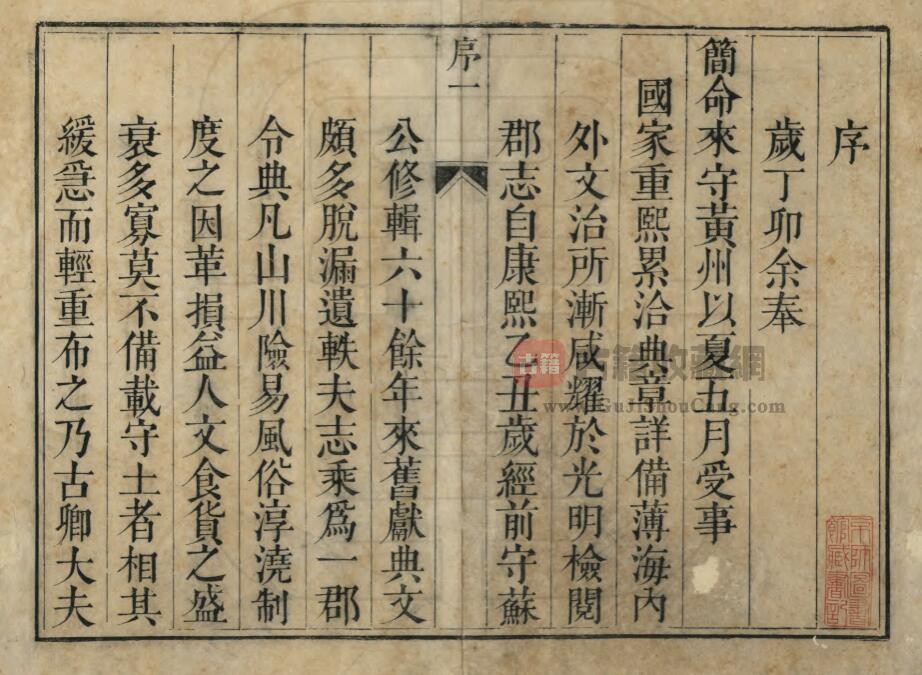 序
歲丁卯余奉
簡命來守黃州以夏五月受事
國家重熙累洽典章詳備薄海內
外文治所漸咸耀於光明檢閱
郡志自康熙乙丑歲經前守蘇
序一
公修輯六十餘年來舊獻典文
頗多脫漏遺軼夫志乘爲一郡
令典凡山川險易風俗淳澆制
度之因革損益人文食貨之盛
衰多寡莫不備載守土者相其
緩急而輕重布之乃古卿大夫
古籍
古籍收藏網
www.GuJiShouCang.com